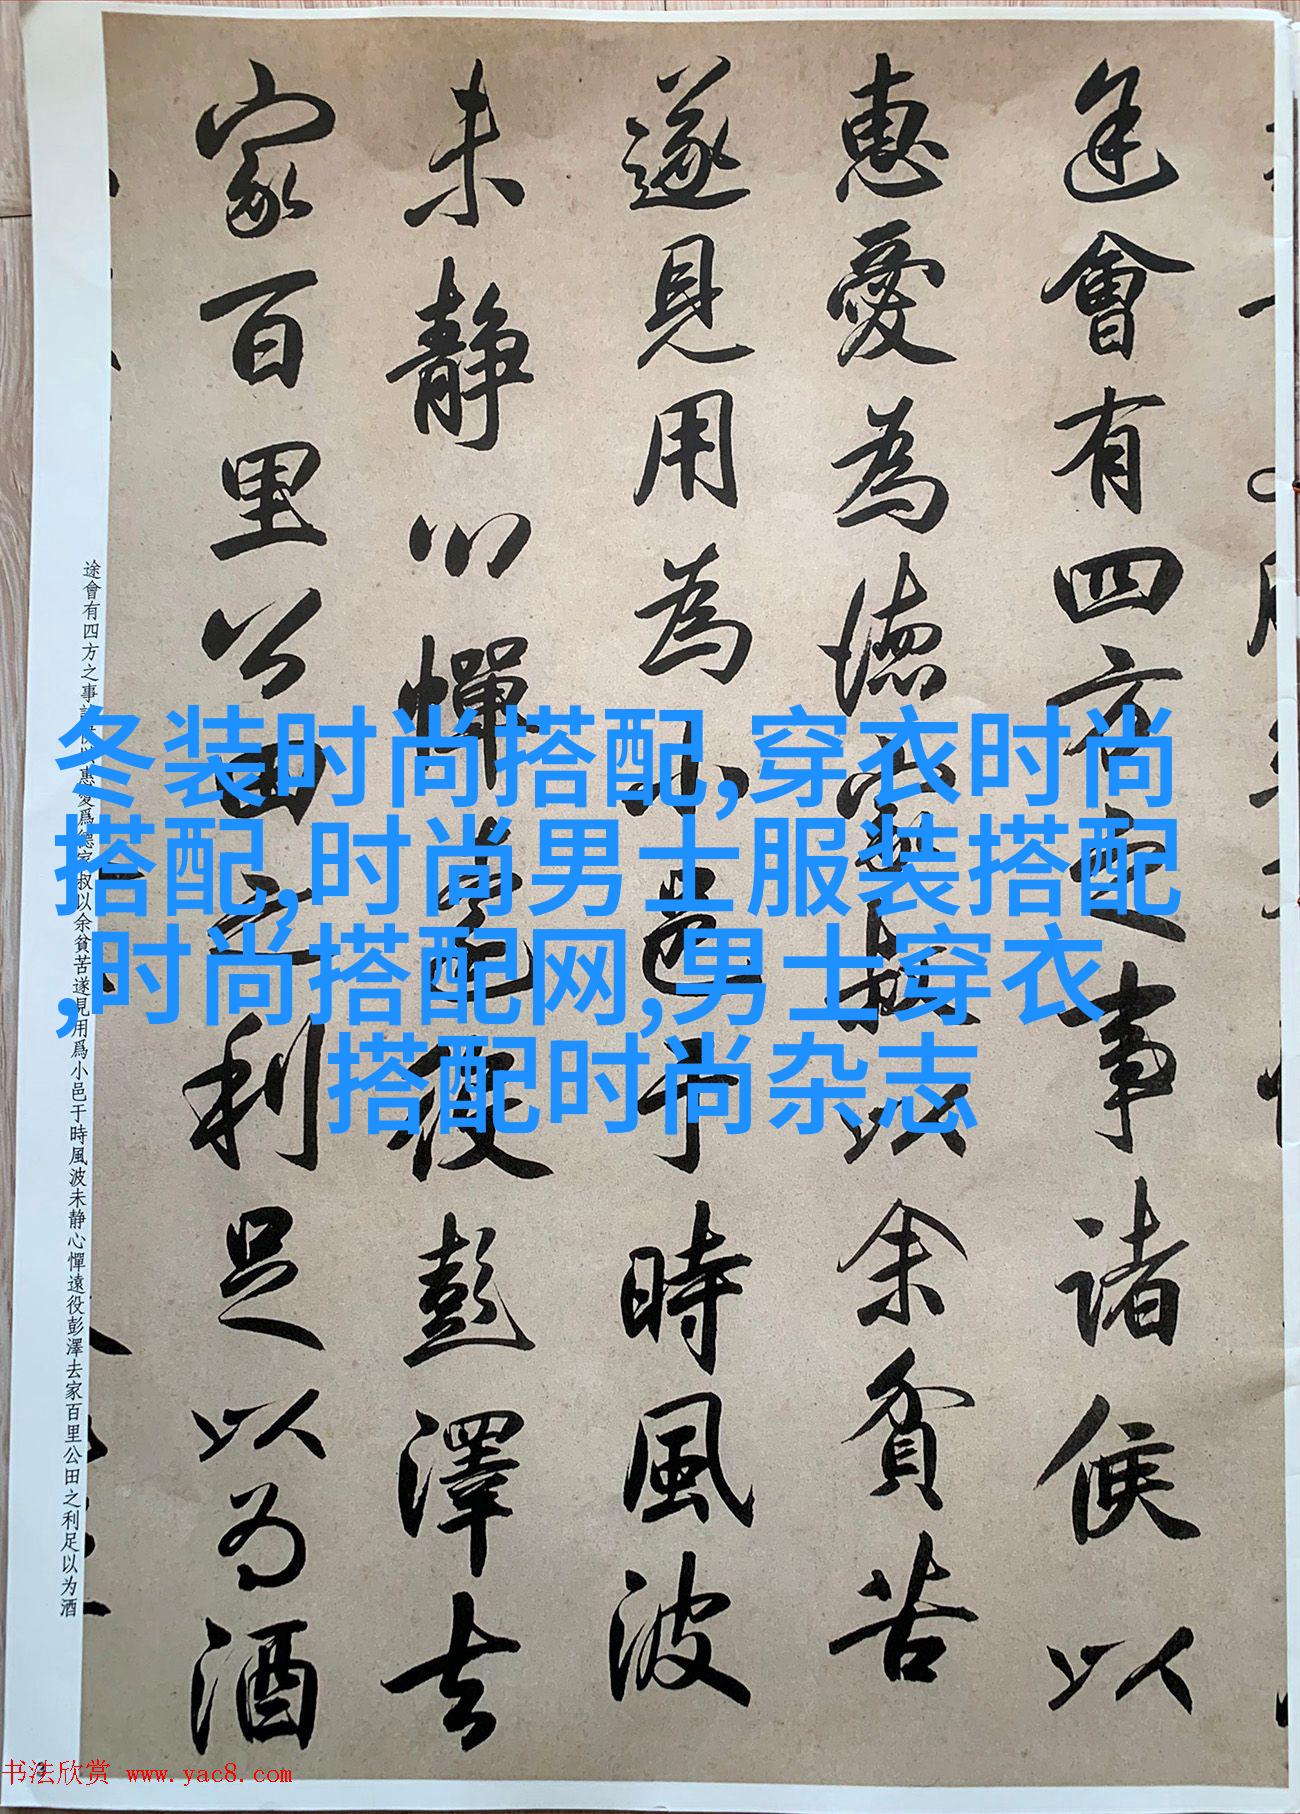 途會有四方之事諸侯以
惠愛為德家叔以余貧苦
遂見用為小邑于時風波
未靜心憚遠役彭澤去
家百里公田之利足以为酒
途會有四方之事諸侯以惠愛爲德家叔以余貧苦遂見用爲小邑于時風波未静心憚遠役彭澤去家百里公田之利足以为酒
冬装时尚搭配,穿衣时尚
搭配,时尚男士服装搭配
,时尚搭配网,男士穿衣
搭配时尚杂志
3
书法欣赏 www.yac8.com